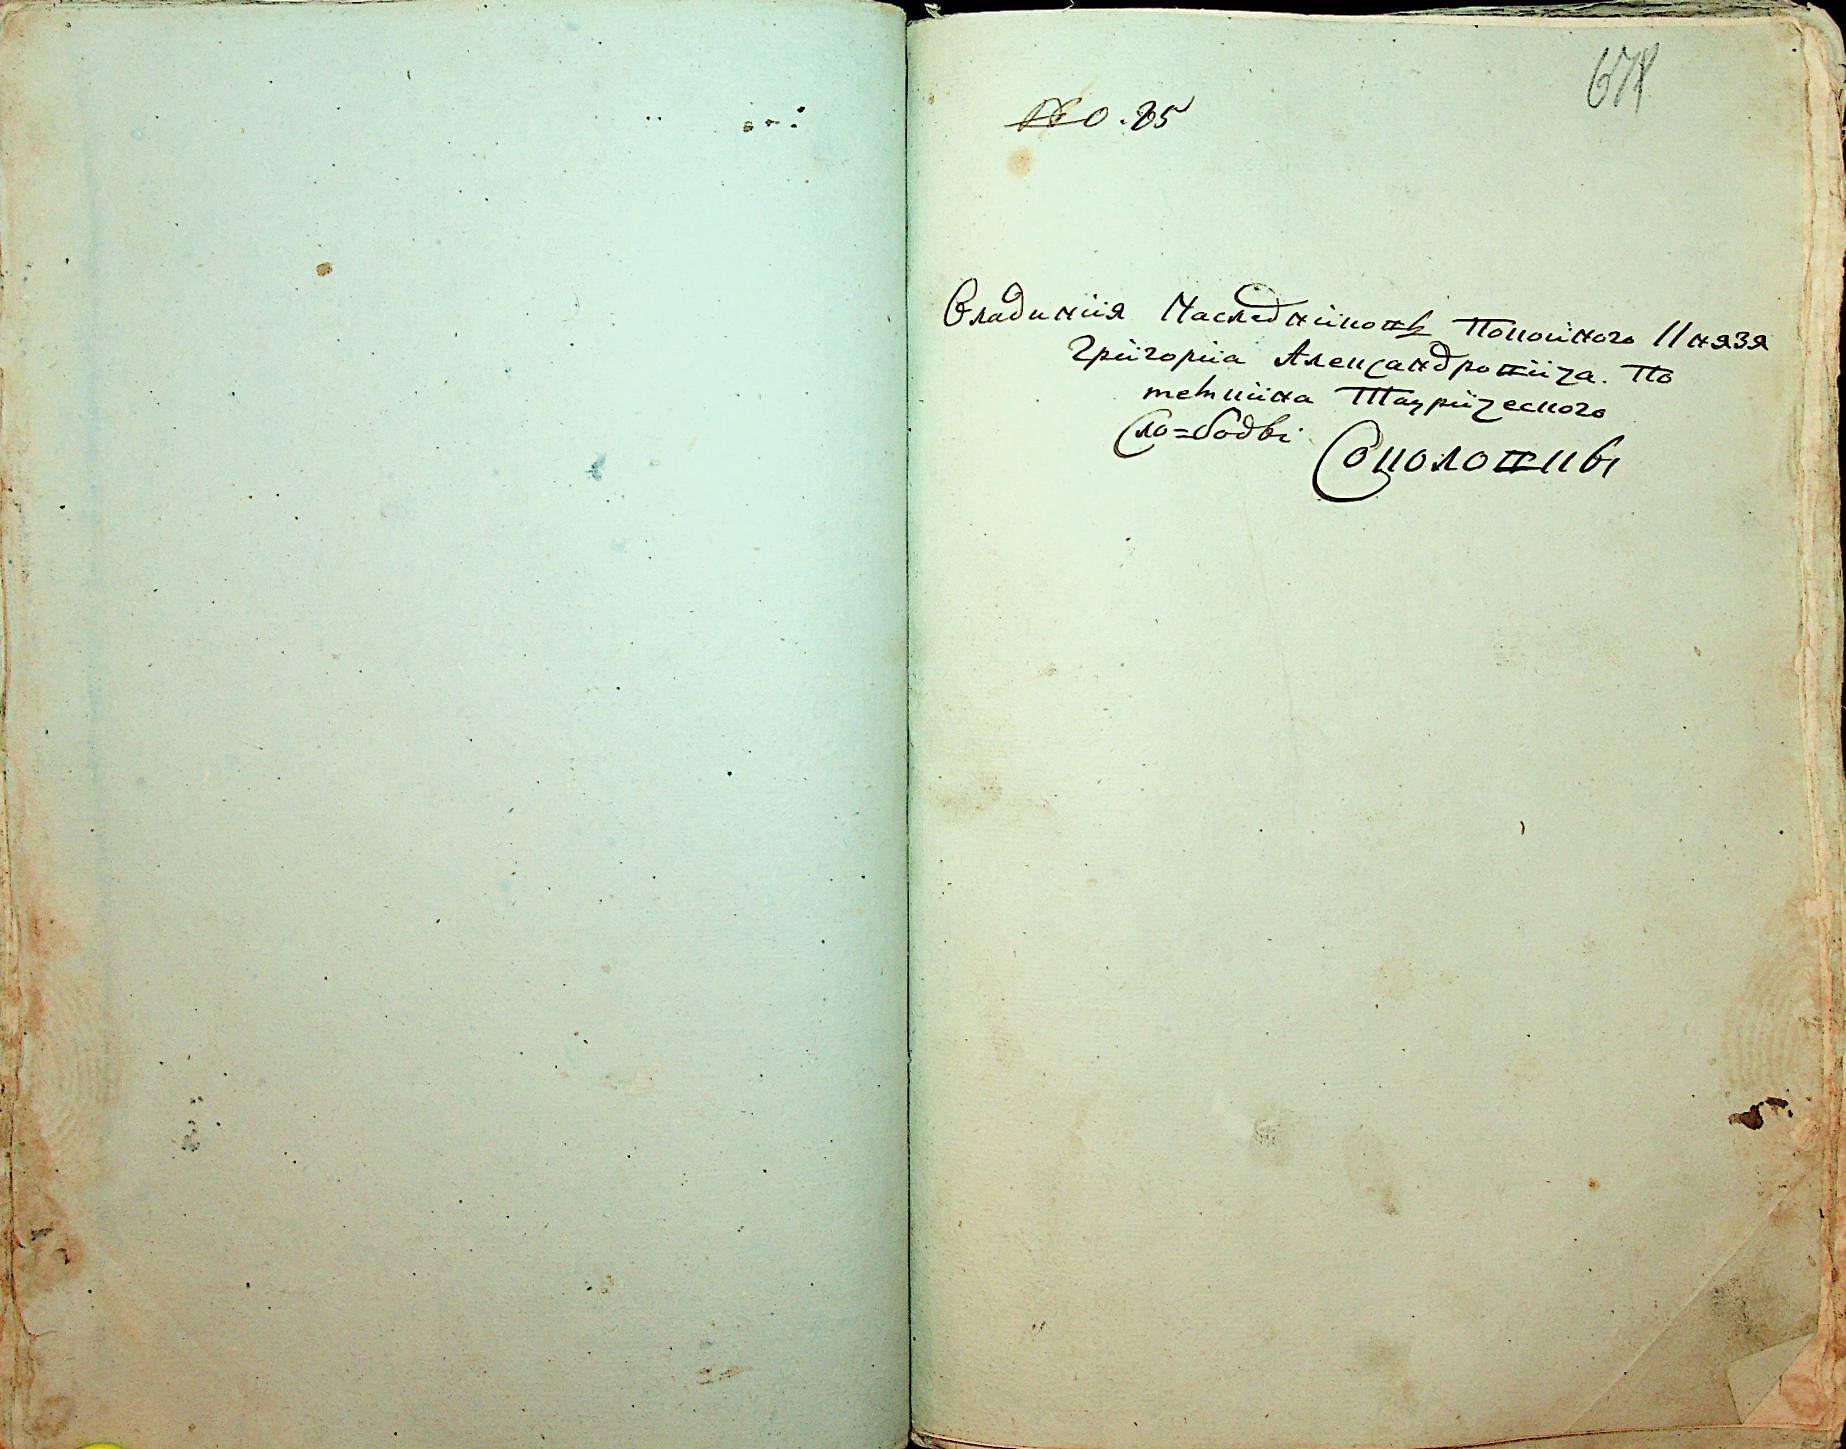 678
No. 85
Владиния Наследниковъ Покойного Князя
Григориа Александровича. По
темкина Таврического
Сло=боды
Соколовкы